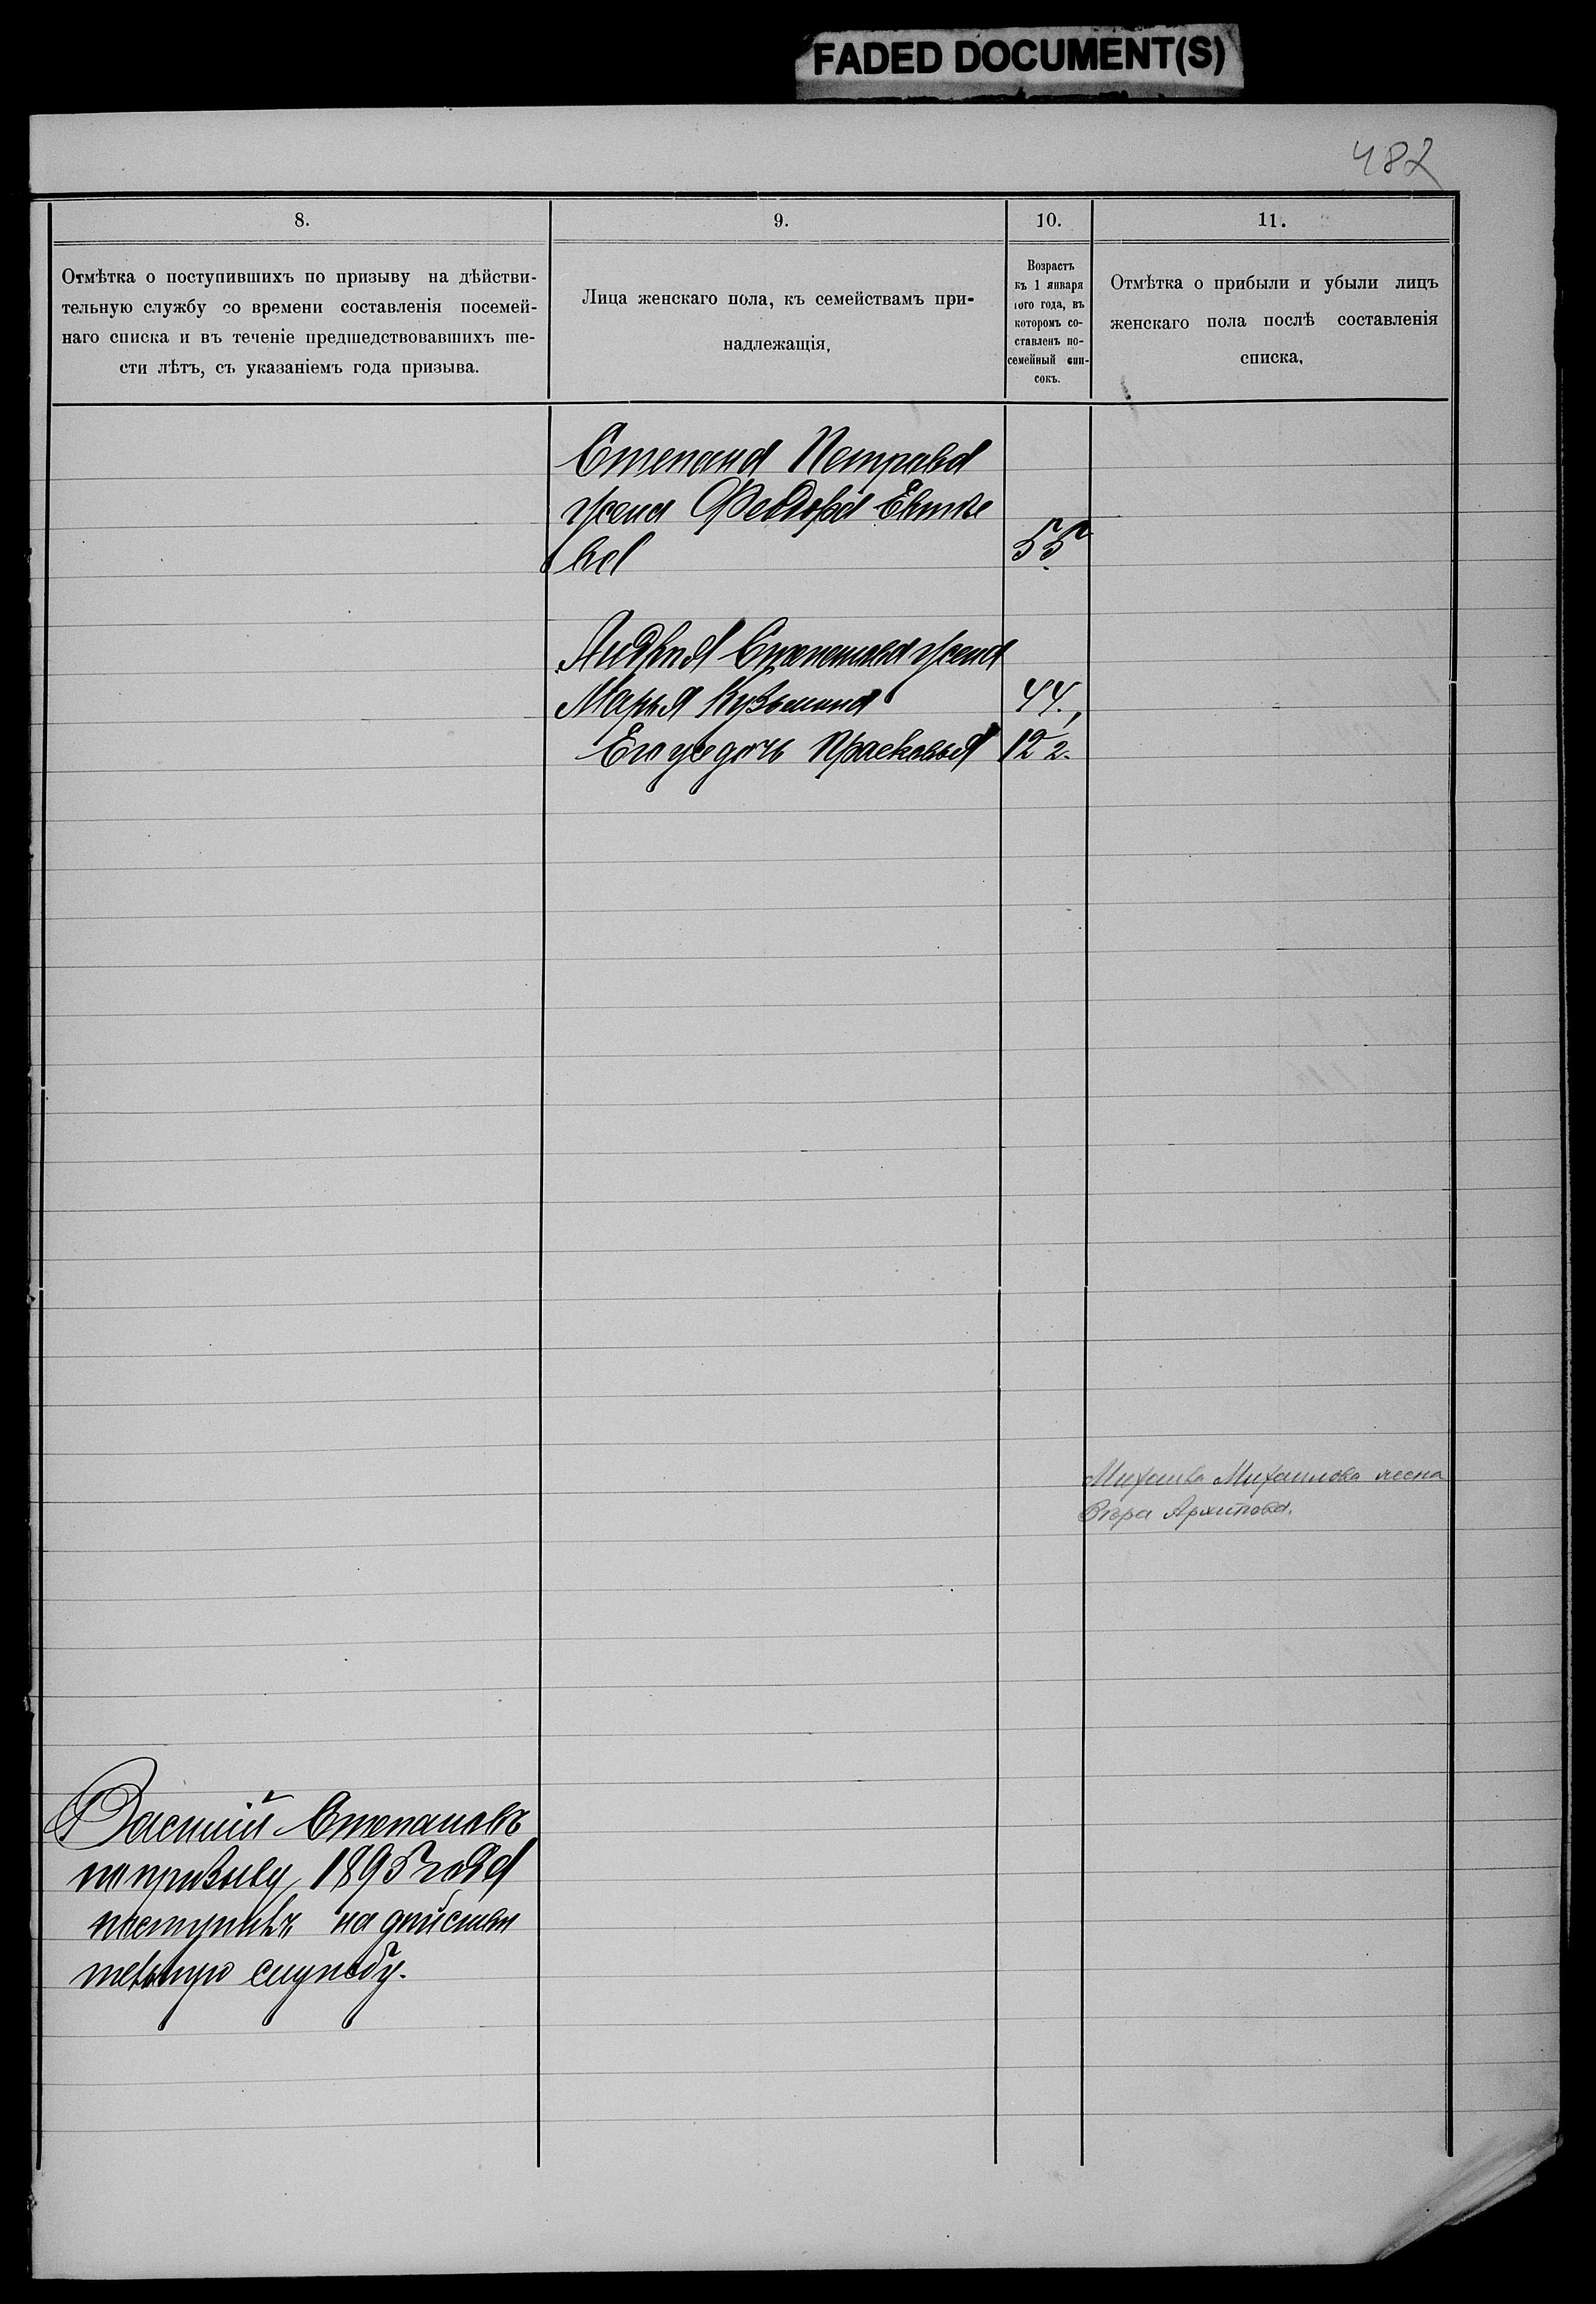 FADED DOCUMENT(S)
482
8.
Отмѣтка о поступившихъ по призыву на дѣйстви-
тельную службу со времени составленія посемей-
наго списка и въ теченіе предшедствовавшихъ ше-
сти лѣтъ, съ указаніемъ года призыва.
9.
Лица женскаго пола, къ семействамъ при-
надлежащія,
10.
Возрастъ
къ 1 января
того года, въ
которомъ со-
ставленъ по-
семейный спи-
сокъ.
11.
Отмѣтка о прибыли и убыли лицъ
женскаго пола послѣ составленія
списка,
Степана Петрова
жена Федора Евтѣе
ва
55
Андрея Степанова жена
Марья Кузьмина
44.
Его же дочь Прасковья
12 2.
Михаила Михаилова жена
Вѣра Архипова.
Василій Степановъ
по призыву 1895 года
поступилъ на дѣйстви
тельную службу.